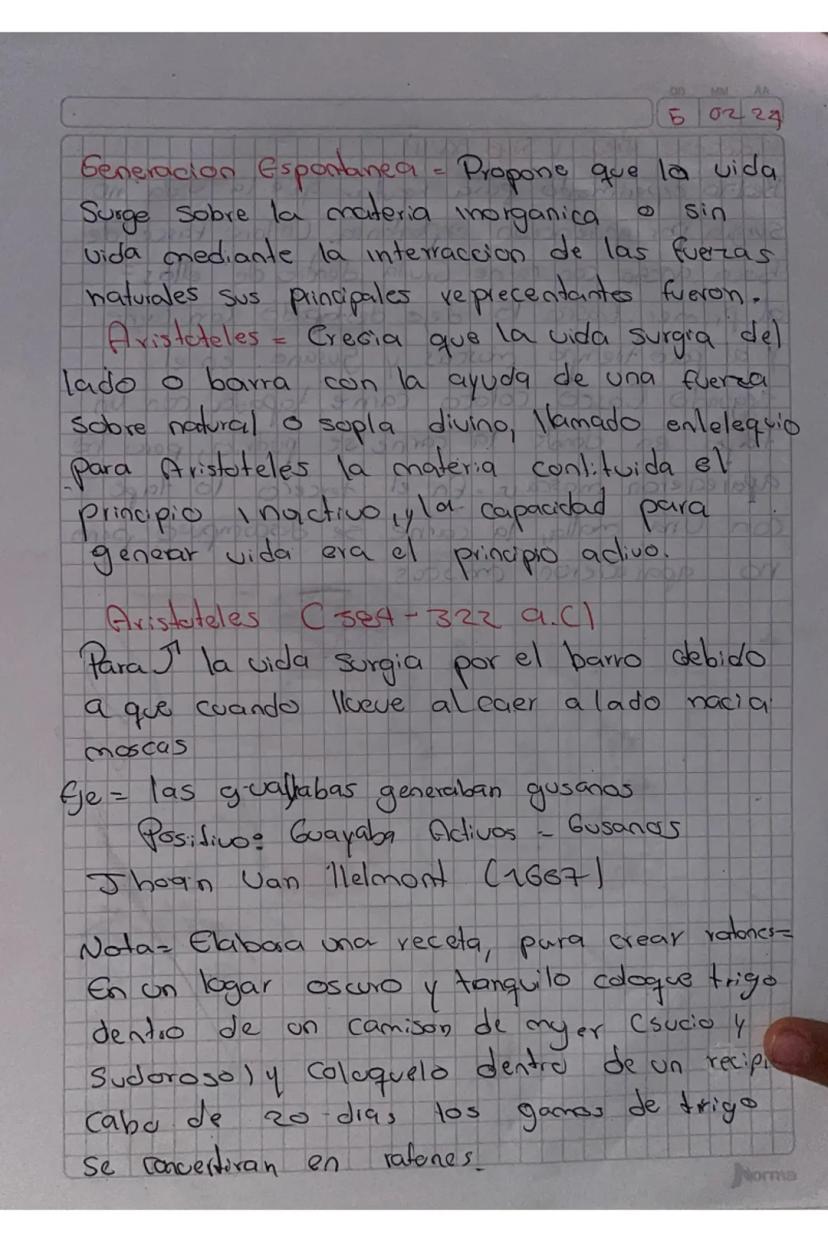 DD MM AA
5 02 24
Generacion Espontanea = Propone que la vida
Surge sobre la materia inorganica o sin
vida mediante la interraccion de las fuerzas
naturales sus principales reprecentantes fueron.
Aristoteles = Creeia que la vida surgia del
lado o barra con la ayuda de una fuerza
sobre natural o sopla divino, llamado entelequio
para Aristoteles la materia contituida el
principio inactivo, y la capacidad para
generar vida era el principio activo.
Aristoteles (384-322 a.C)
Para la vida surgia por el barro debido
a que cuando llueve al caer a lado nacia
moscas
Eje = las guallabas generaban gusanos
Positivo: Guayaba Activos - Gusanos
Jhoan Van Helmont (1667)
Nota = Elabora una receta, para crear ratones=
En un logar oscuro y tanquilo coloque trigo
dentro de un camison de myer (sucio y
sudoroso) y coloquelo dentro de un recipi
cabo de 20 dias los granos de trigo
se concertiran en ratones.
Norma